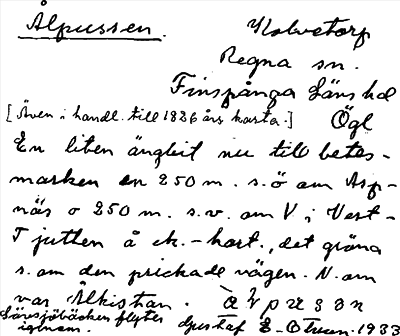 Ålpussen.
Kolvetorp
Regna sn.
Finspånga läns hd
[Även i handl. till 1826 års karta.] Ögl
En liten ängbit nu till betes-
marken en 250 m. s.ö om Asp-
näs o 250 m. s.v. om V i Vest-
Tjutten å ek.-kart., det gröna
s. om den prickade vägen. N. om
var Ålkistan.
Sävsjöbäcken flyter
igenom.
Gustaf E-Ohsson. 1933